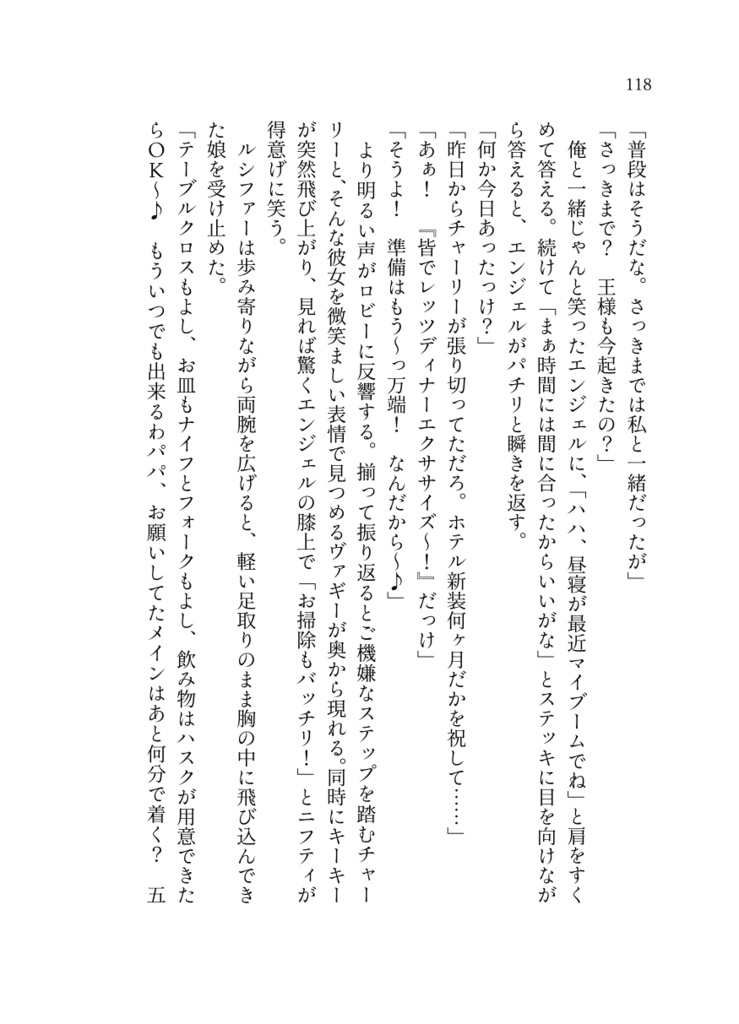 118
「普段はそうだな。さっきまでは私と一緒だったが」
「さっきまで？　王様も今起きたの？」
　俺と一緒じゃんと笑ったエンジェルに、「ハハ、昼寝が最近マイブームでね」と肩をすく
めて答える。続けて「まぁ時間には間に合ったからいいがな」とステッキに目を向けなが
ら答えると、エンジェルがパチリと瞬きを返す。
「何か今日あったっけ？」
「昨日からチャーリーが張り切ってただろ。ホテル新装何ヶ月だかを祝して……」
「あぁ！　『皆でレッツディナーエクササイズ〜！』だっけ」
「そうよ！　準備はもう〜っ万端！　なんだから〜♪」
　より明るい声がロビーに反響する。揃って振り返るとご機嫌なステップを踏むチャー
リーと、そんな彼女を微笑ましい表情で見つめるヴァギーが奥から現れる。同時にキーキー
が突然飛び上がり、見れば驚くエンジェルの膝上で「お掃除もバッチリ！」とニフティが
得意げに笑う。
　ルシファーは歩み寄りながら両腕を広げると、軽い足取りのまま胸の中に飛び込んでき
た娘を受け止めた。
「テーブルクロスもよし、お皿もナイフとフォークもよし、飲み物はハスクが用意できた
らOK〜♪　もういつでも出来るわパパ、お願いしてたメインはあと何分で着く？　五